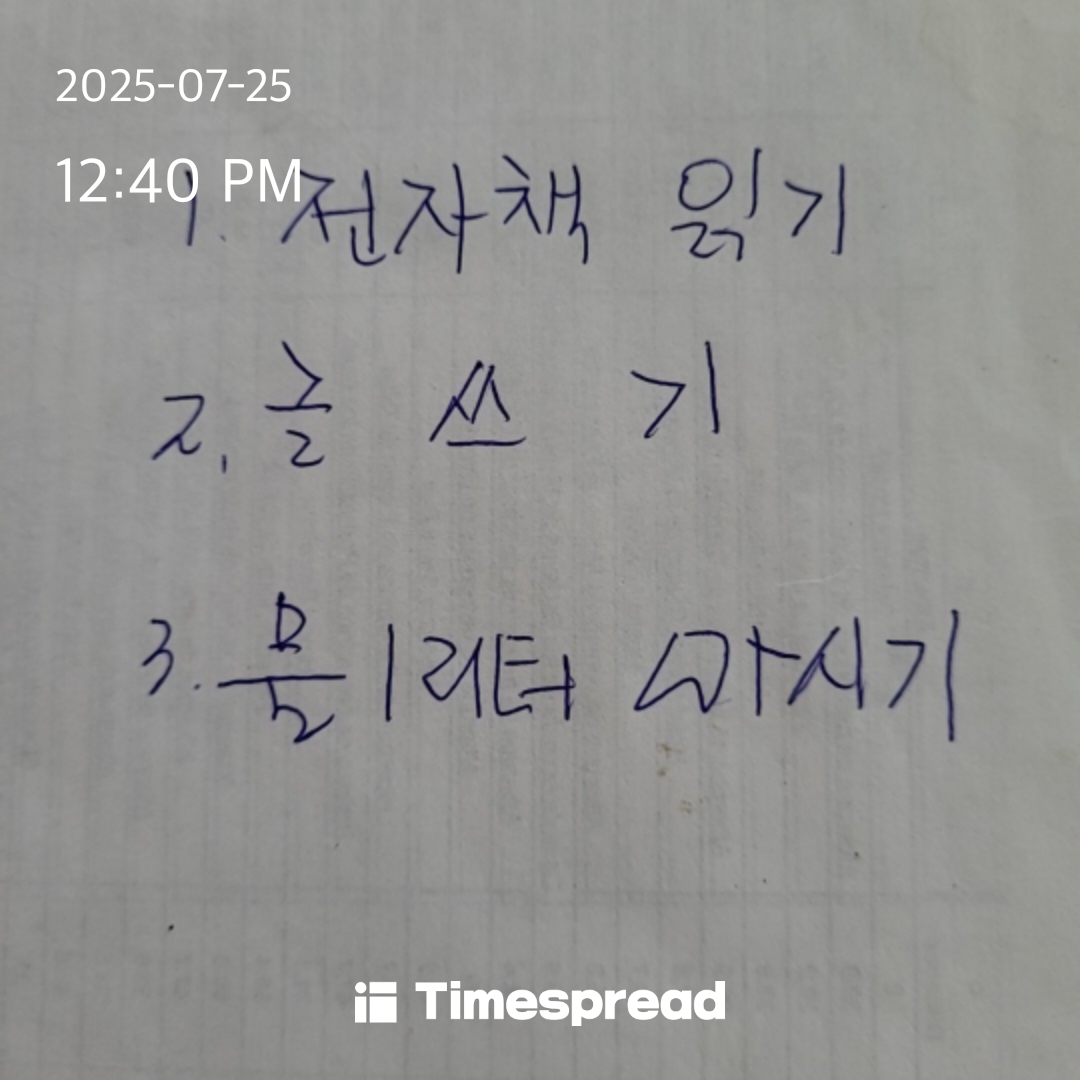 2025-07-25
12:40 PM
1. 전자책 읽기
2. 글 쓰 기
3. 물 1리터 마시기
Timespread